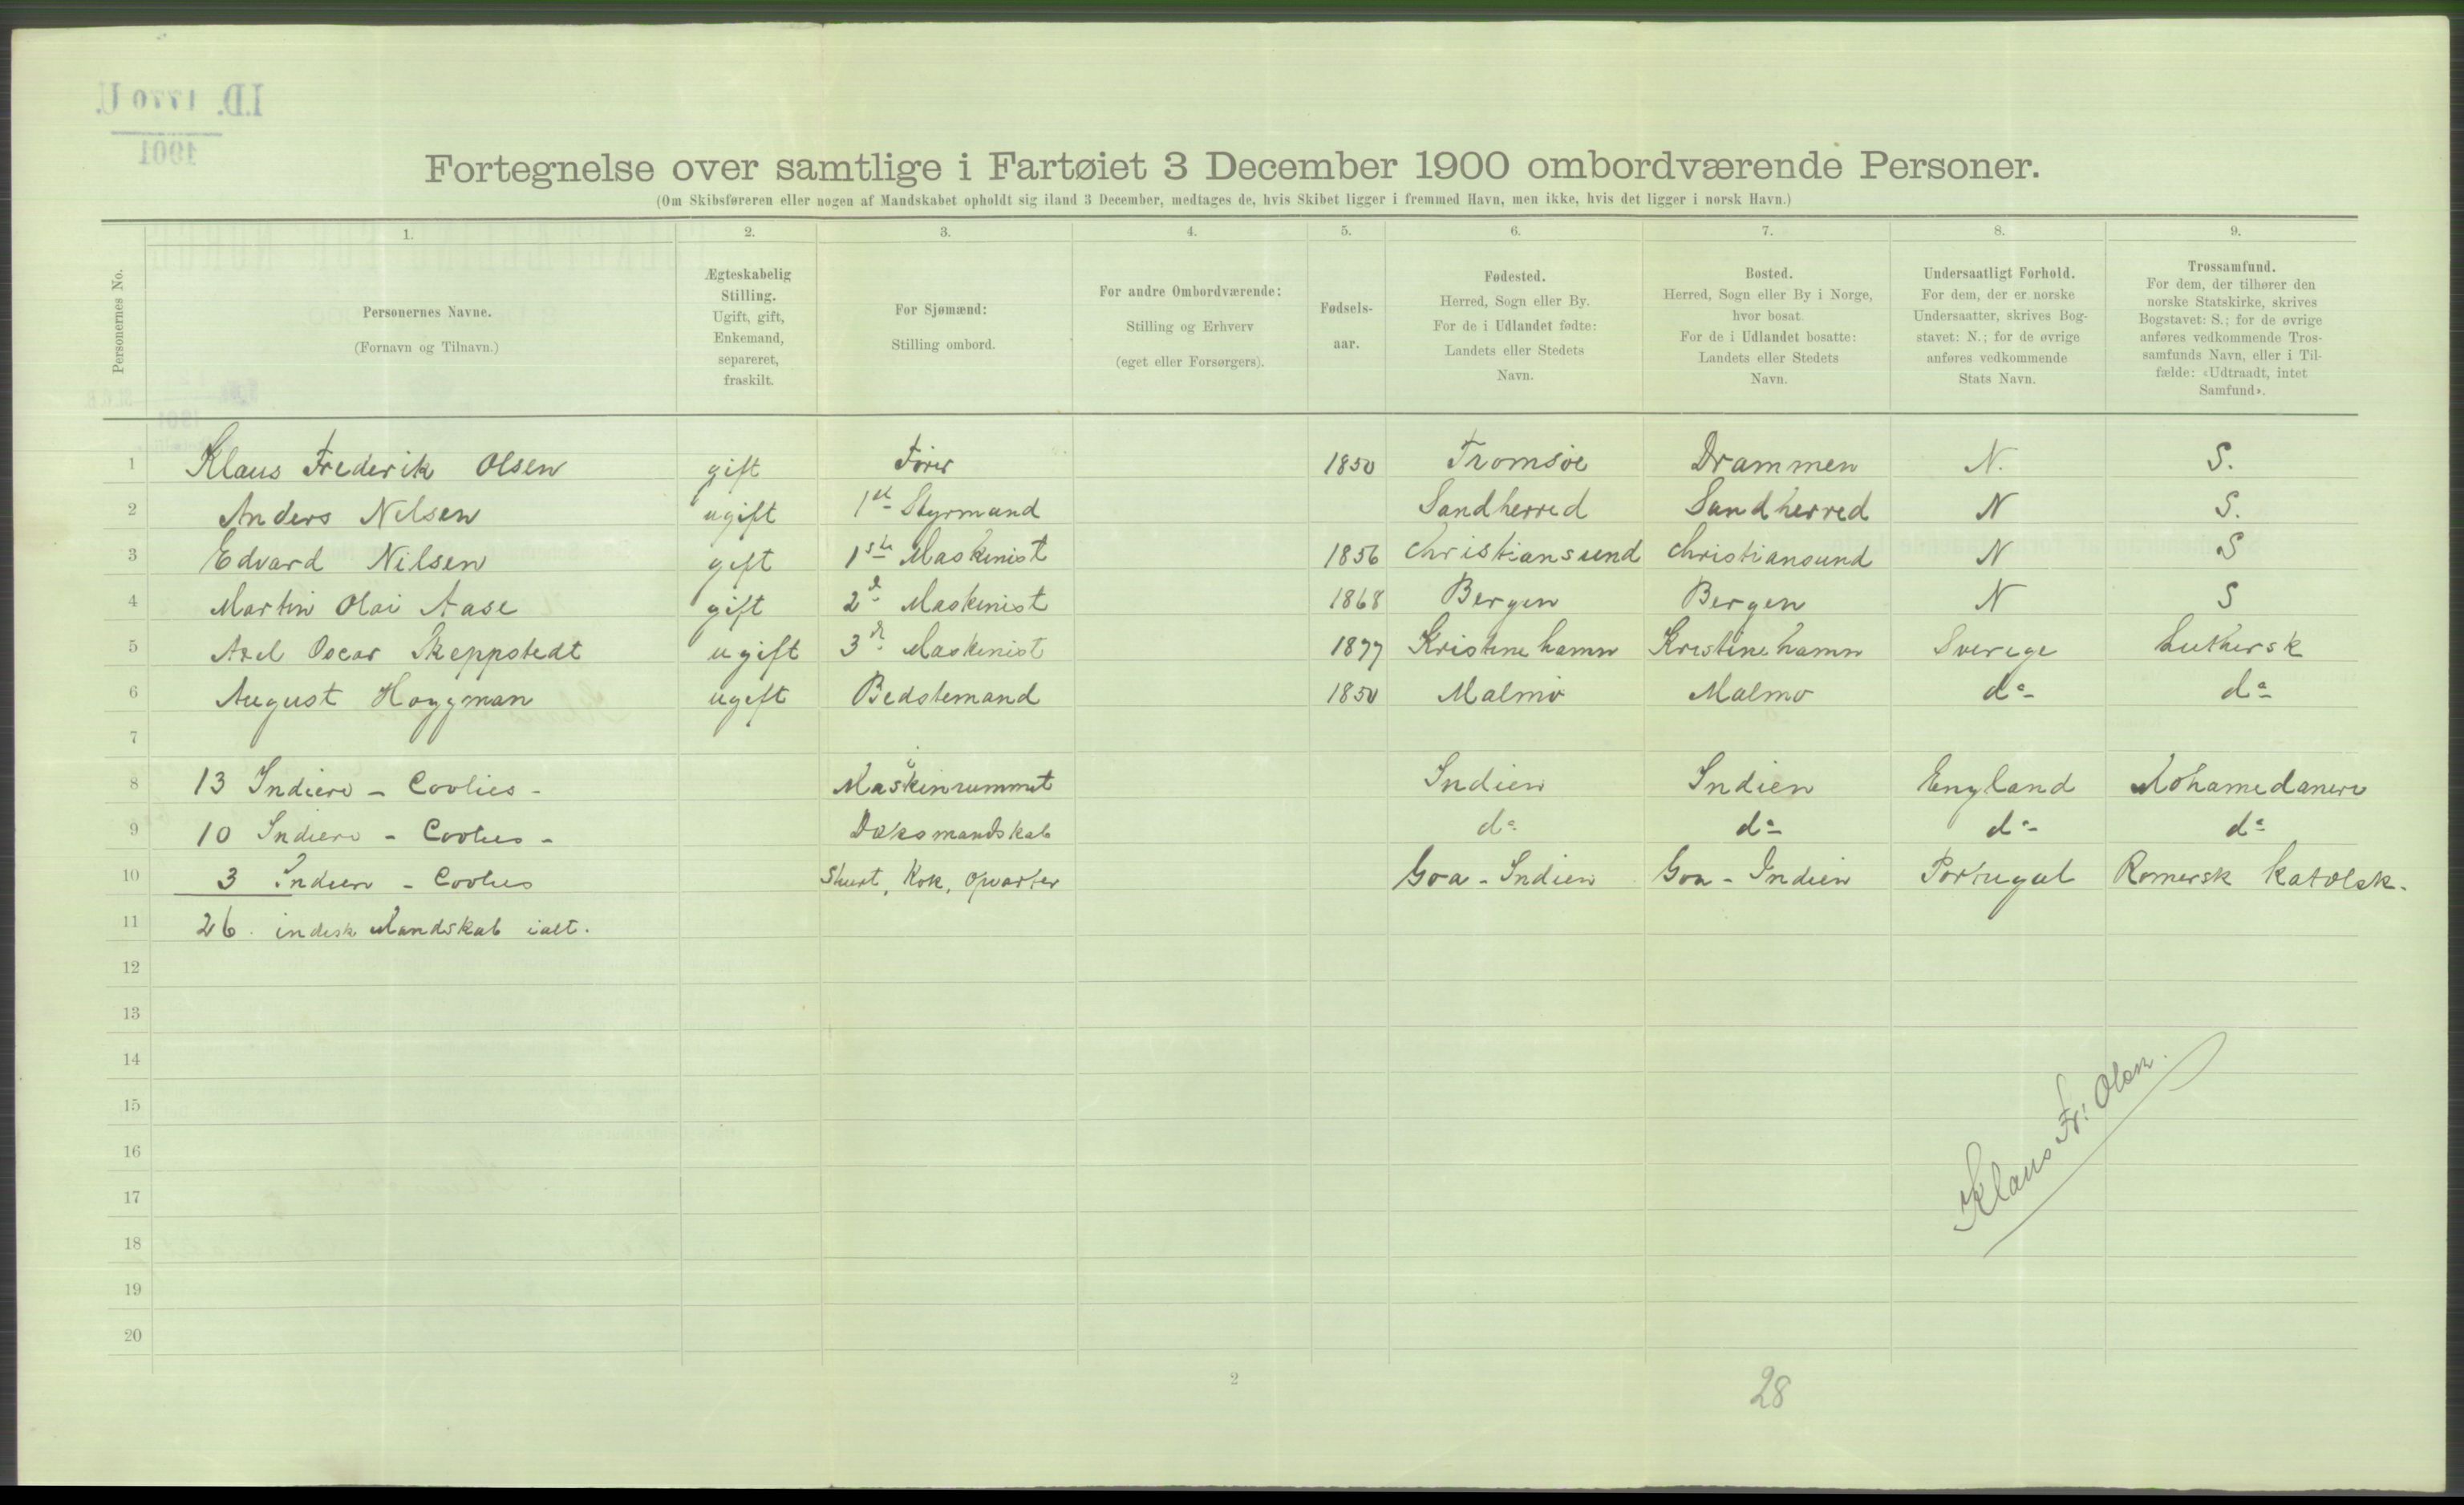 I.D. 1770 U.
1901
Fortegnelse over samtlige i Fartøiet 3 December 1900 ombordværende Personer.
(Om Skibsføreren eller nogen af Mandskabet opholdt sig iland 3 December, medtages de, hvis Skibet ligger i fremmed Havn, men ikke, hvis det ligger i norsk Havn.)
Personernes No.
1. 2. 3. 4. 5. 6. 7. 8. 9.
Personernes Navne.
(Fornavn og Tilnavn.)
Ægteskabelig
Stilling.
Ugift, gift,
Enkemand,
separeret,
fraskilt.
For Sjømænd:
Stilling ombord.
For andre Ombordværende:
Stilling og Erhverv
(eget eller Forsørgers).
Fødsels-
aar.
Fødested.
Herred, Sogn eller By.
For de i Udlandet fødte:
Landets eller Stedets
Navn.
Bosted.
Herred, Sogn eller By i Norge,
hvor bosat.
For de i Udlandet bosatte:
Landets eller Stedets
Navn.
Undersaatligt Forhold.
For dem, der er norske
Undersaatter, skrives Bog-
stavet: N.; for de øvrige
anføres vedkommende
Stats Navn.
Trossamfund.
For dem, der tilhører den
norske Statskirke, skrives
Bogstavet: S.; for de øvrige
anføres vedkommende Tros-
samfunds Navn, eller i Til-
fælde: «Udtraadt, intet
Samfund».
1 Klaus Frederik Olsen gift Fører 1850 Tromsöe Drammen N. S.
2 Anders Nilsen ugift 1st Styrmand Sandherred Sandherred N S.
3 Edvard Nilsen gift 1ste Maskinist 1856 Christiansund Christiansund N S
4 Martin Olai Aase gift 2d Maskinist 1868 Bergen Bergen N S
5 Axel Oscar Skeppstedt ugift 3d Maskinist 1877 Kristinehamn Kristinehamn Sverige Luthersk
6 August Hoggman ugift Bedstemand 1850 Malmö Malmo do do
7
8 13 Indiere - Coolies - Maskinrummet Indien Indien England Mohamedanere
9 10 Indiere - Coolies - Dæksmandskab do do do do
10 3 Indien - Coolies Stuert, Kok, Opvarter Goa - Indien Goa - Indien Portugal Romersk Katolsk.
11 26 indisk Mandskab ialt.
12
13
14
15
16
17
18
19
20
Klaus Fr: Olsen.
2
28